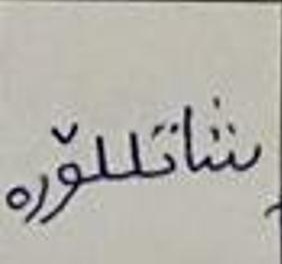 شاتللۆرە